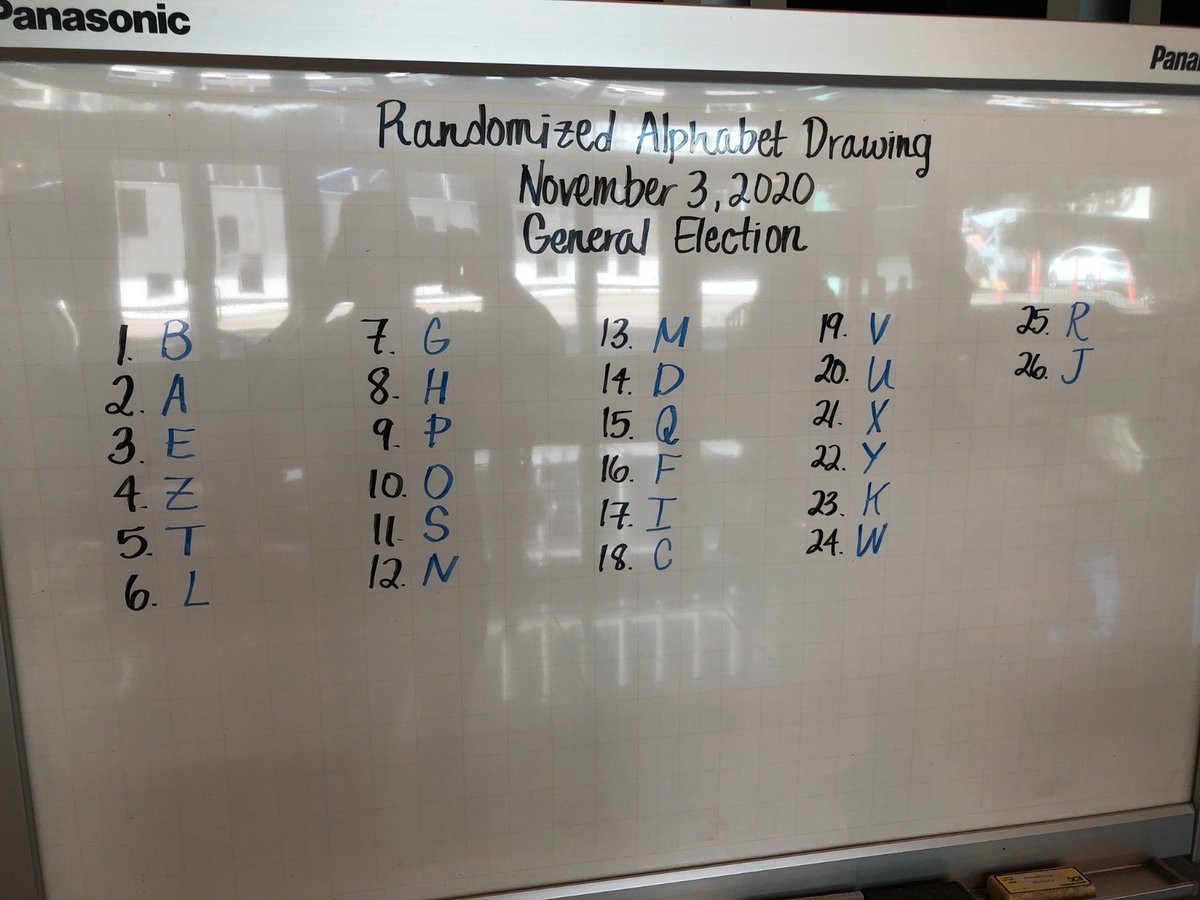 Panasonic
Randomized Alphabet Drawing
November 3, 2020
General Election
1. B
2. A
3. E
4. Z
5. T
6. L
7. G
8. H
9. P
10. O
11. S
12. N
13. M
14. D
15. Q
16. F
17. I
18. C
19. V
20. U
21. X
22. Y
23. K
24. W
25. R
26. J